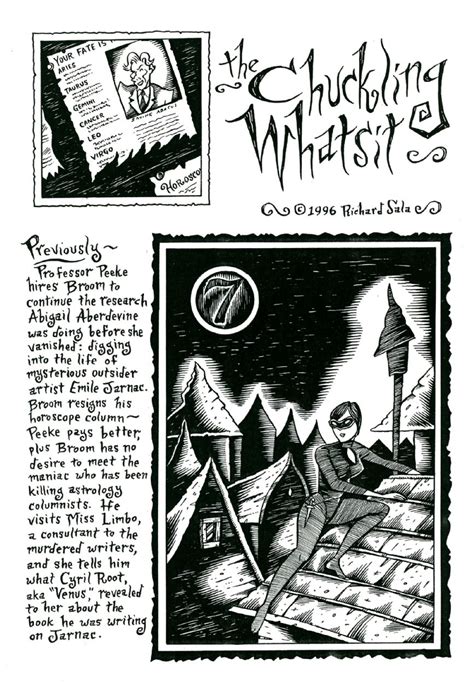 YOUR FATE IS
ARIES
TAURUS
GEMINI
CANCER
LEO
VIRGO
HOROSCO
the
Chuckling
Whatsit
© 1996 Richard Sala
7
Previously~
Professor Peeke
hires Broom to
continue the research
Abigail Aberdevine
was doing before she
vanished: digging
into the life of
mysterious outsider
artist Emile Jarnac.
Broom resigns his
horoscope column~
Peeke pays better,
plus Broom has no
desire to meet the
maniac who has been
killing astrology
columnists. He
visits Miss Limbo,
a consultant to the
murdered writers,
and she tells him
what Cyril Root,
aka "Venus," revealed
to her about the
book he was writing
on Jarnac.